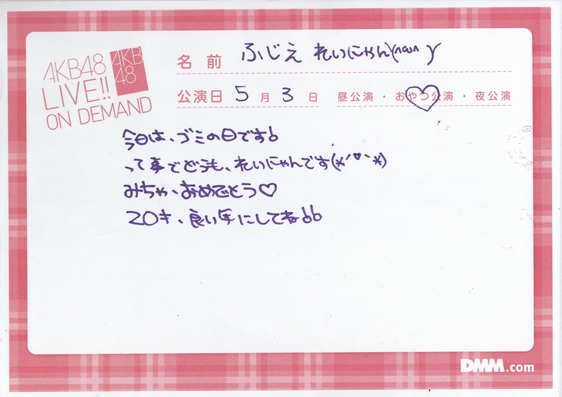 AKB48
LIVE!!
ON DEMAND
AKB
48
名前 ふじえ れいにゃん(^ω^ )
公演日 5月3日 昼公演・おやつ公演・夜公演
今日は、ゴミの日です♪
って事でどうも、れいにゃんです(*´♡`*)
みちゃ、おめでとう♡
20才、良い年にしてね♪♪
DMM.com